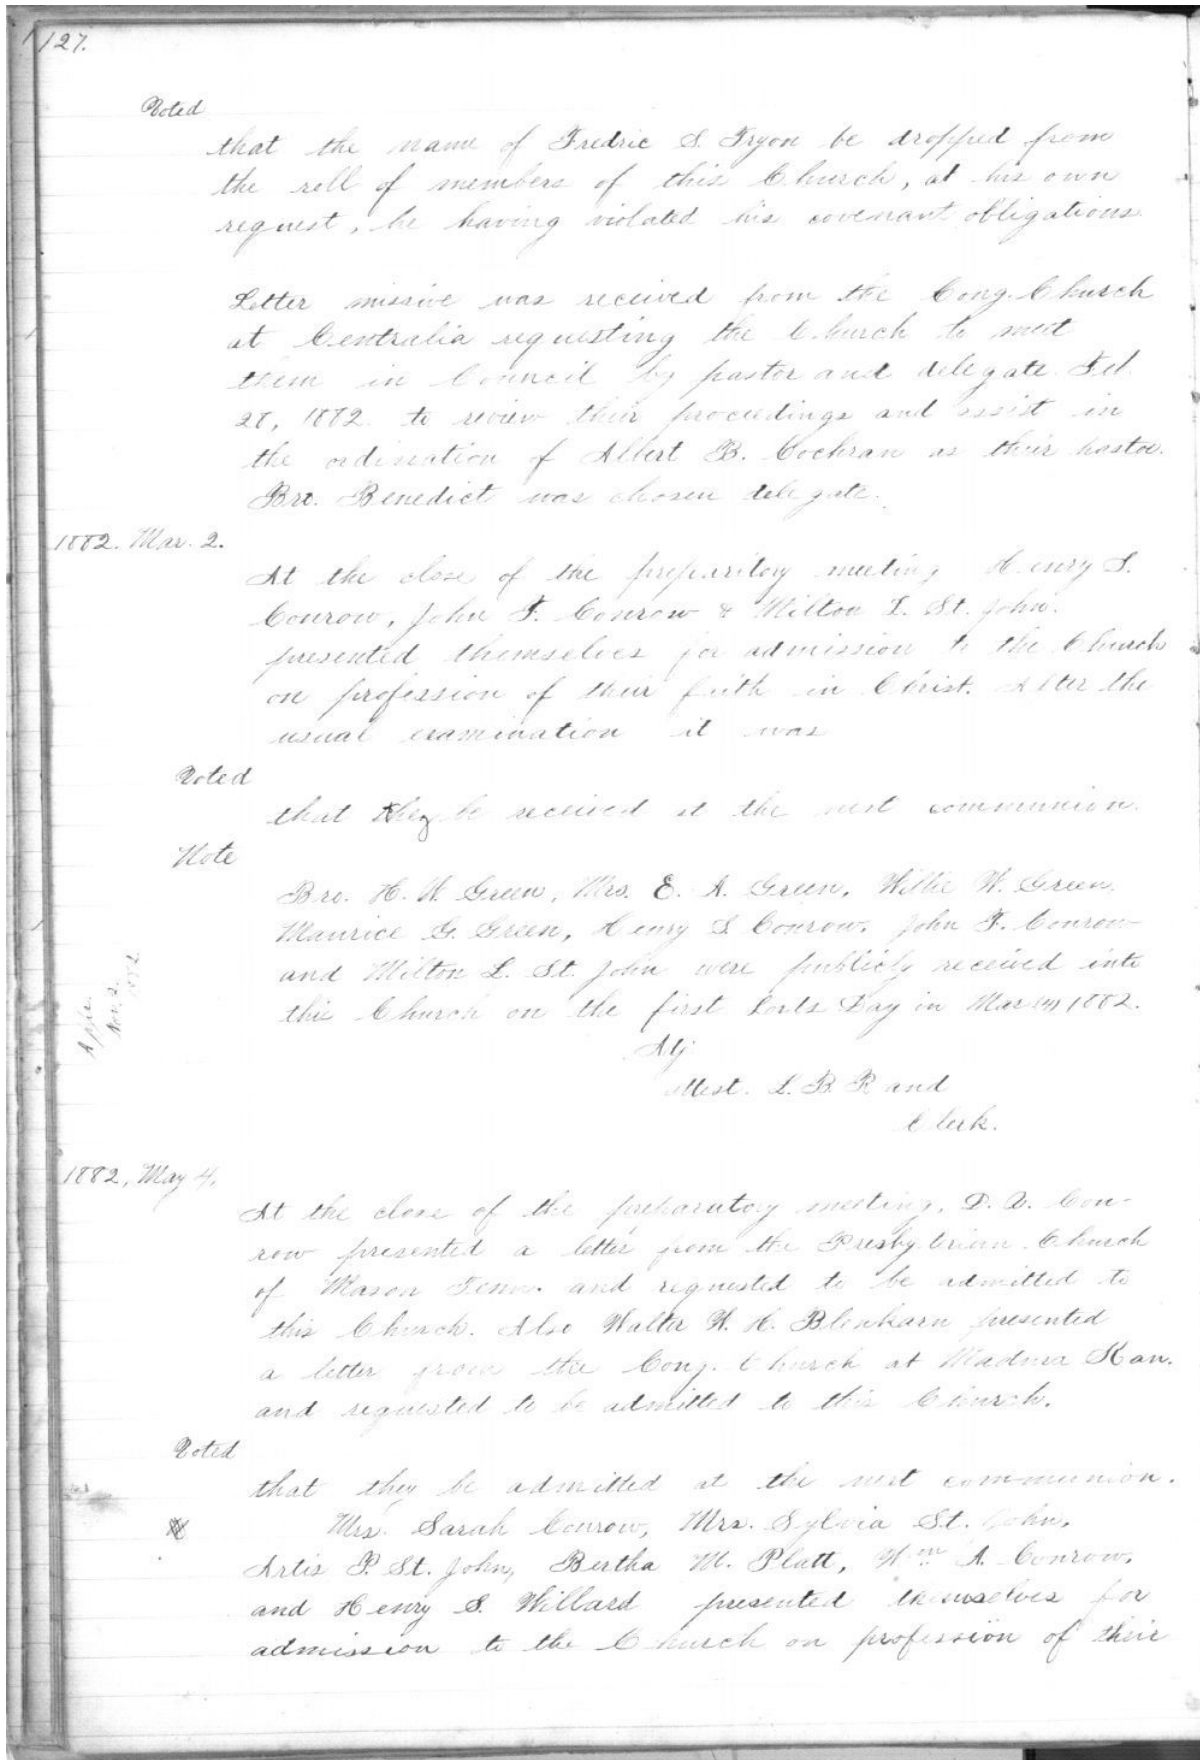 127.
Voted
that the name of Fredric S. Tryon be dropped from
the roll of members of this Church, at his own
request, he having violated his covenant obligations.
Letter missive was received from the Cong. Church
at Centralia requesting the Church to meet
them in Council by pastor and delegate Feb.
28, 1882. to review their proceedings and assist in
the ordination of Albert B. Cochran as their pastor.
Bro. Benedict was chosen delegate.
1882. Mar. 2.
At the close of the preparitory meeting Henry S.
Conrow, John F. Conrow & Milton L. St. John.
presented themselves for admission to the Church
on profession of their faith in Christ. After the
usual examination it was
Voted
that they be received at the next communion.
Note
Bro. H. W. Green, Mrs. E. A. Green, Willie W. Green,
Maurice G. Green, Henry S. Conrow, John F. Conrow
and Milton L. St. John were publicly received into
this Church on the first Lords Day in March 1882.
Adj
Attest. L. B. Rand
Clerk.
Nov. 2.
1882
1882, May 4.
At the close of the preparatory meeting, D. V. Con-
row presented a letter from the Presbyterian Church
of Mason Tenn. and requested to be admitted to
this Church. Also Walter W. H. Blenkarn presented
a letter from the Cong. Church at Madura Kan.
and requested to be admitted to this Church.
Voted
that they be admitted at the next communion.
Mrs. Sarah Conrow, Mrs. Sylvia St. John,
Artis P. St. John, Bertha M. Platt, Wm A. Conrow,
and Henry S. Willard presented themselves for
admission to the Church on profession of their